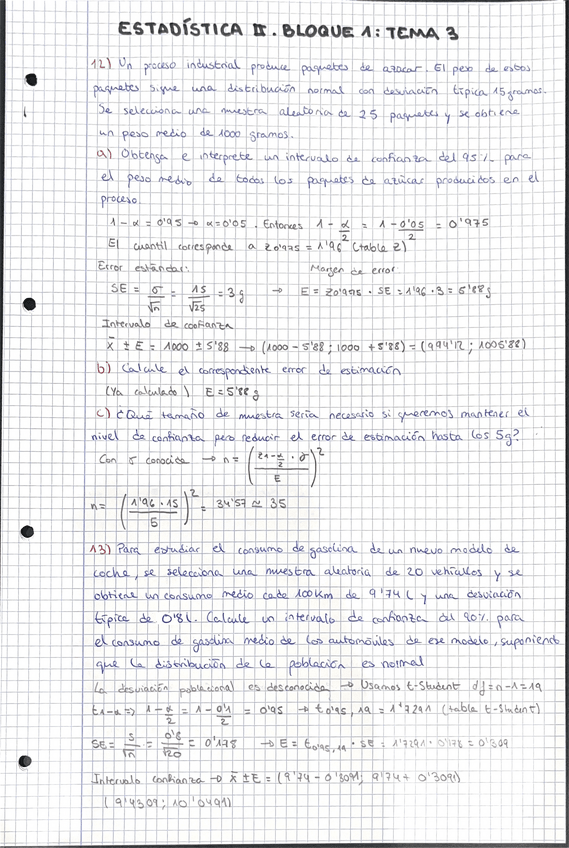 ESTADÍSTICA II. BLOQUE 1: TEMA 3
12) Un proceso industrial produce paquetes de azocar. El peso de estos
paquetes sigue una distribución normal con desviación típica 15 gramos.
Se selecciona una muestra aleatoria de 25 paquetes y se obtiene
un peso medio de 1000 gramos.
a) Obtenga e interprete un intervalo de confianza del 95% para
el peso medio de todos los paquetes de azúcar producidos en el
proceso.
1-α = 0'95 → α=0'05. Entonces 1 - α/2 = 1 - 0'05/2 = 0'975
El cuantil corresponde a z0'975 = 1'96 (tabla z)
Error estándar: Margen de error
SE = σ/√n = 15/√25 = 3 g → E = z0'975 · SE = 1'96 · 3 = 5'88 g
Intervalo de confianza
x̄ ± E = 1000 ± 5'88 → (1000 - 5'88 ; 1000 + 5'88) = (994'12; 1005'88)
b) Calcule el correspondiente error de estimación
(Ya calculado) E = 5'88 g
c) ¿Qué tamaño de muestra sería necesario si queremos mantener el
nivel de confianza pero reducir el error de estimación hasta los 5g?
Con σ conocida → n = (z1-α/2 · σ / E)²
n = (1'96 · 15 / 5)² = 34'57 ≃ 35
13) Para estudiar el consumo de gasolina de un nuevo modelo de
coche, se selecciona una muestra aleatoria de 20 vehículos y se
obtiene un consumo medio cada 100Km de 9'74 L y una desviación
típica de 0'8 l. Calcule un intervalo de confianza del 90% para
el consumo de gasolina medio de los automóviles de ese modelo, suponiendo
que la distribución de la población es normal
La desviación poblacional es desconocida → Usamos t-Student df = n-1 = 19
t1-α => 1 - α/2 = 1 - 0'1/2 = 0'95 → t0'95, 19 = 1'7291 (tabla t-Student)
SE = s/√n = 0'8/√20 = 0'178 → E = t0'95, 19 · SE = 1'7291 · 0'178 = 0'309
Intervalo confianza → x̄ ± E = (9'74 - 0'3091; 9'74 + 0'3091)
(9'4309; 10'0491)